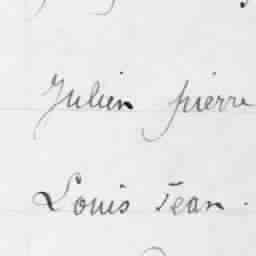 Julien pierre
Louis Jean.